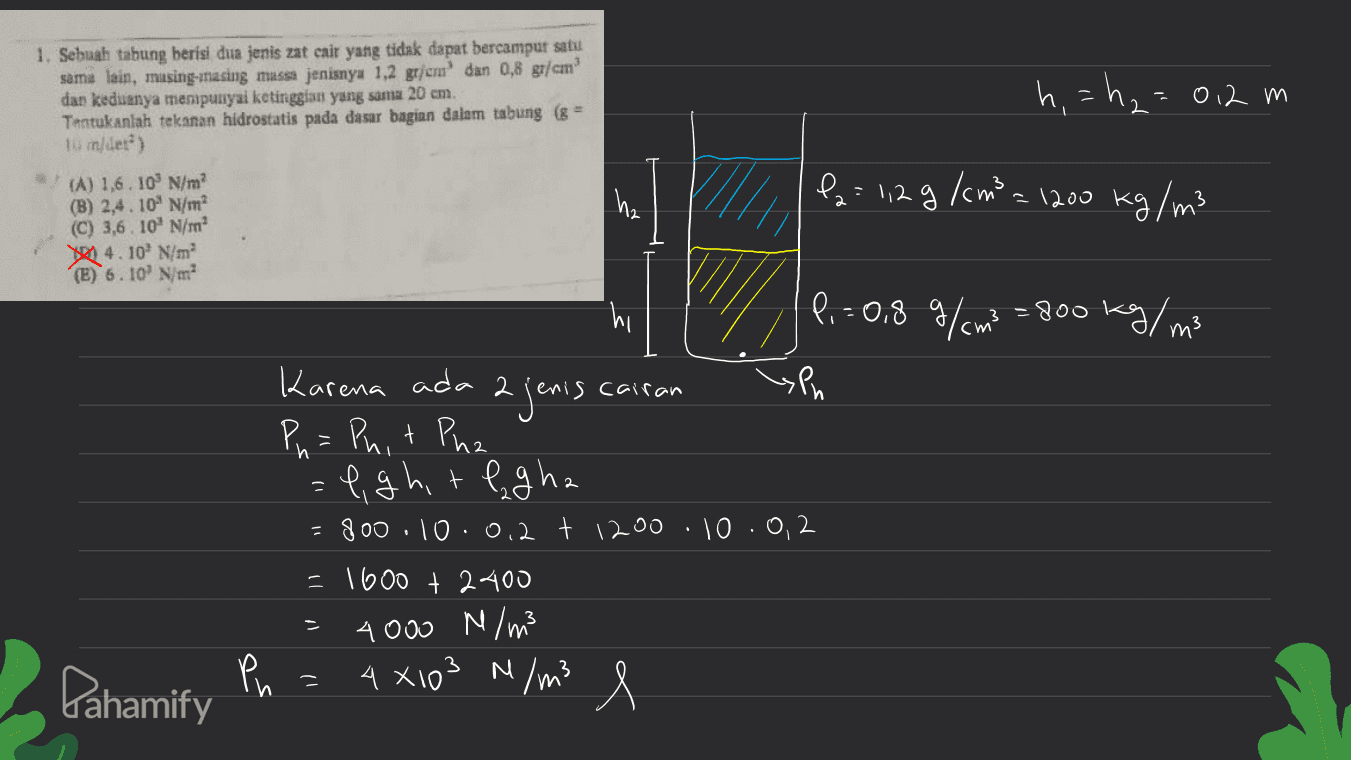 1. Sebuah tabung berisi dua jenis zat cair yang tidak dapat bercampur satu
sama lain, masing-masing massa jenisnya 1,2 gr/cm³ dan 0,8 gr/cm³
dan keduanya mempunyai ketinggian yang sama 20 cm.
Tentukanlah tekanan hidrostatis pada dasar bagian dalam tabung (g =
10 m/det²)
(A) 1,6 . 10³ N/m²
(B) 2,4 . 10³ N/m²
(C) 3,6 . 10³ N/m²
(D) 4 . 10³ N/m²
(E) 6 . 10³ N/m²
h₁ = h₂ = 0,2 m
h₂
ρ₂ = 1,2 g/cm³ = 1200 kg/m³
h₁
ρ₁ = 0,8 g/cm³ = 800 kg/m³
Ph
Karena ada 2 jenis cairan
Ph = Ph₁ + Ph₂
= ρ₁gh₁ + ρ₂gh₂
= 800 . 10 . 0,2 + 1200 . 10 . 0,2
= 1600 + 2400
= 4000 N/m³
Ph = 4 x 10³ N/m³
Pahamify